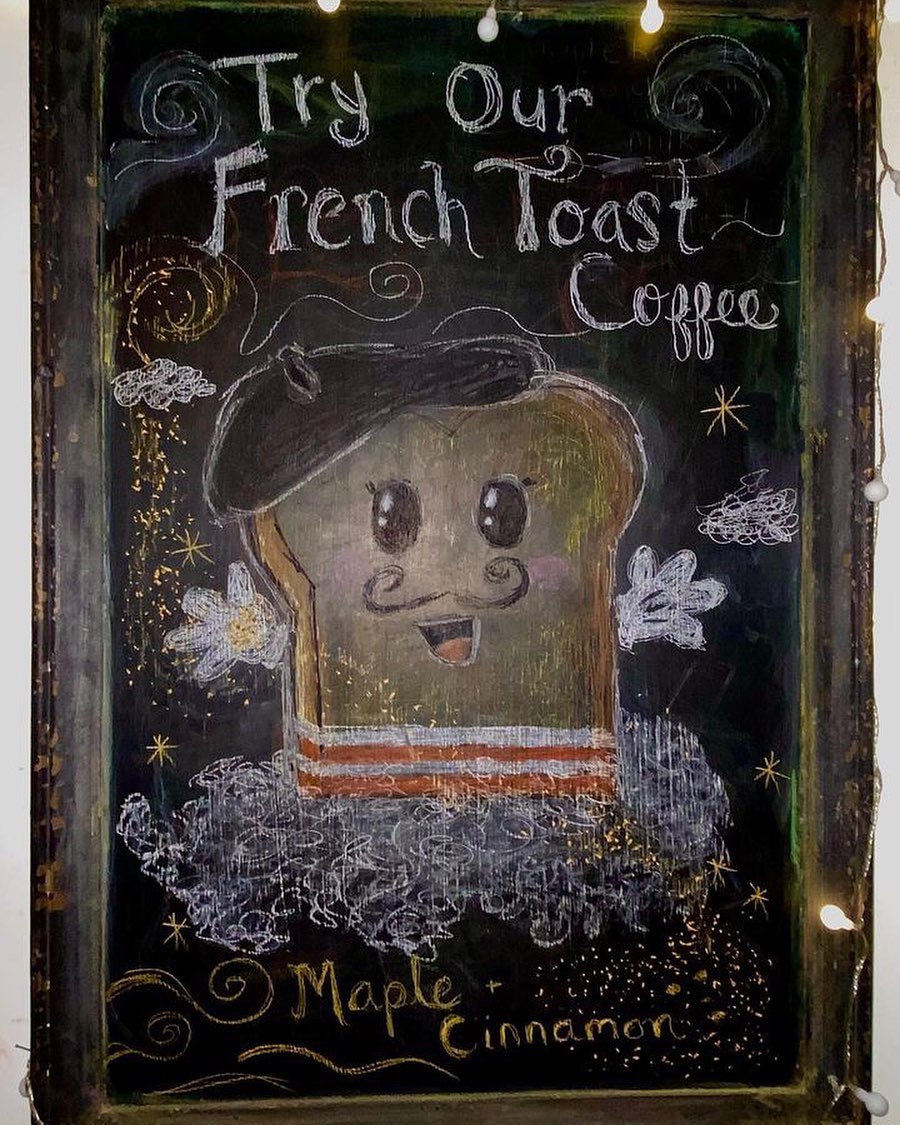 Try Our
French Toast
Coffee
Maple +
Cinnamon